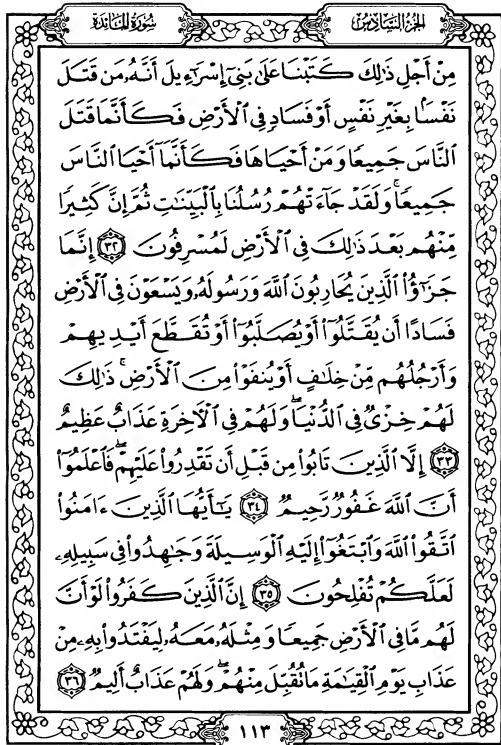 الجزء السادس
سورة المائدة
مِنْ أَجْلِ ذَٰلِكَ كَتَبْنَا عَلَىٰ بَنِىٓ إِسْرَٰٓءِيلَ أَنَّهُۥ مَن قَتَلَ
نَفْسًۢا بِغَيْرِ نَفْسٍ أَوْ فَسَادٍ فِى ٱلْأَرْضِ فَكَأَنَّمَا قَتَلَ
ٱلنَّاسَ جَمِيعًا وَمَنْ أَحْيَاهَا فَكَأَنَّمَآ أَحْيَا ٱلنَّاسَ
جَمِيعًا ۚ وَلَقَدْ جَآءَتْهُمْ رُسُلُنَا بِٱلْبَيِّنَٰتِ ثُمَّ إِنَّ كَثِيرًا
مِّنْهُم بَعْدَ ذَٰلِكَ فِى ٱلْأَرْضِ لَمُسْرِفُونَ ٣٢ إِنَّمَا
جَزَٰٓؤُا۟ ٱلَّذِينَ يُحَارِبُونَ ٱللَّهَ وَرَسُولَهُۥ وَيَسْعَوْنَ فِى ٱلْأَرْضِ
فَسَادًا أَن يُقَتَّلُوٓا۟ أَوْ يُصَلَّبُوٓا۟ أَوْ تُقَطَّعَ أَيْدِيهِمْ
وَأَرْجُلُهُم مِّنْ خِلَٰفٍ أَوْ يُنفَوْا۟ مِنَ ٱلْأَرْضِ ۚ ذَٰلِكَ
لَهُمْ خِزْىٌ فِى ٱلدُّنْيَا ۖ وَلَهُمْ فِى ٱلْـَٔاخِرَةِ عَذَابٌ عَظِيمٌ
٣٣ إِلَّا ٱلَّذِينَ تَابُوا۟ مِن قَبْلِ أَن تَقْدِرُوا۟ عَلَيْهِمْ ۖ فَٱعْلَمُوٓا۟
أَنَّ ٱللَّهَ غَفُورٌ رَّحِيمٌ ٣٤ يَٰٓأَيُّهَا ٱلَّذِينَ ءَامَنُوا۟
ٱتَّقُوا۟ ٱللَّهَ وَٱبْتَغُوٓا۟ إِلَيْهِ ٱلْوَسِيلَةَ وَجَٰهِدُوا۟ فِى سَبِيلِهِۦ
لَعَلَّكُمْ تُفْلِحُونَ ٣٥ إِنَّ ٱلَّذِينَ كَفَرُوا۟ لَوْ أَنَّ
لَهُم مَّا فِى ٱلْأَرْضِ جَمِيعًا وَمِثْلَهُۥ مَعَهُۥ لِيَفْتَدُوا۟ بِهِۦ مِنْ
عَذَابِ يَوْمِ ٱلْقِيَٰمَةِ مَا تُقُبِّلَ مِنْهُمْ ۖ وَلَهُمْ عَذَابٌ أَلِيمٌ ٣٦
١١٣